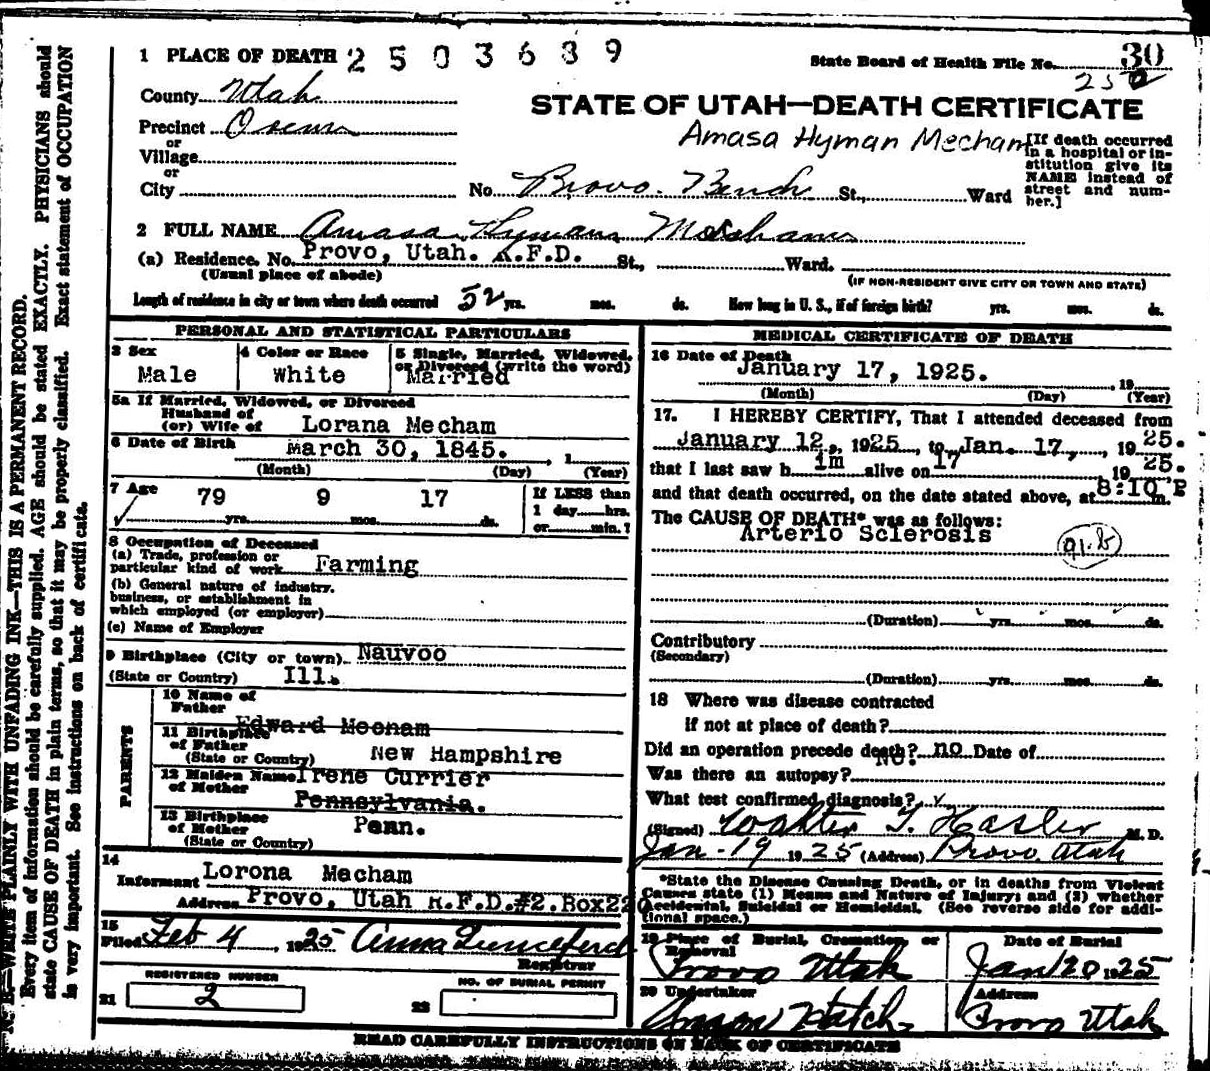 1 PLACE OF DEATH 2503689
State Board of Health File No. 30
252
County Utah
STATE OF UTAH—DEATH CERTIFICATE
Precinct Orem
Amasa Hyman Mecham
or
Village
or
City
No. Provo Bench St., Ward
[If death occurred
in a hospital or in-
stitution give its
NAME instead of
street and num-
ber.]
2 FULL NAME Amasa Hyman Mecham
(a) Residence. No. Provo, Utah. R.F.D. St., Ward.
(Usual place of abode)
(IF NON-RESIDENT GIVE CITY OR TOWN AND STATE)
Length of residence in city or town where death occurred 52 yrs. mos. ds. How long in U. S., if of foreign birth? yrs. mos. ds.
PERSONAL AND STATISTICAL PARTICULARS
3 Sex
Male
4 Color or Race
White
5 Single, Married, Widowed,
or Divorced (write the word)
Married
5a If Married, Widowed, or Divorced
Husband of
(or) Wife of Lorana Mecham
6 Date of Birth March 30, 1845. , 1
(Month) (Day) (Year)
7 Age
79 yrs. 9 mos. 17 ds.
If LESS than
1 day hrs.
or min. ?
8 Occupation of Deceased
(a) Trade, profession or
particular kind of work Farming
(b) General nature of industry,
business, or establishment in
which employed (or employer)
(c) Name of Employer
9 Birthplace (City or town) Nauvoo
(State or Country) Ill.
PARENTS
10 Name of
Father
Edward Mecham
11 Birthplace
of Father
(State or Country) New Hampshire
12 Maiden Name Irene Currier
of Mother
Pennsylvania.
13 Birthplace
of Mother Penn.
(State or Country)
14
Informant Lorona Mecham
Address Provo, Utah R.F.D.#2.Box220
15
Filed Feb 4 , 1925
Registrar
REGISTERED NUMBER
21 2
NO. OF BURIAL PERMIT
22
MEDICAL CERTIFICATE OF DEATH
16 Date of Death
January 17, 1925. , 19
(Month) (Day) (Year)
17. I HEREBY CERTIFY, That I attended deceased from
January 12, 1925, to Jan. 17, , 1925.
that I last saw him alive on 17 1925.
and that death occurred, on the date stated above, at 8:10 P m.
The CAUSE OF DEATH* was as follows:
Arterio Sclerosis
91.b
(Duration) yrs. mos. ds.
Contributory
(Secondary)
(Duration) yrs. mos. ds.
18 Where was disease contracted
if not at place of death?
Did an operation precede death? no Date of
Was there an autopsy? No.
What test confirmed diagnosis? x
(Signed) Walter T. Hasler M. D.
Jan-19 1925 (Address) Provo Utah
*State the Disease Causing Death, or in deaths from Violent
Causes state (1) Means and Nature of Injury; and (2) whether
Accidental, Suicidal or Homicidal. (See reverse side for addi-
tional space.)
19 Place of Burial, Cremation, or
Removal
Provo Utah
Date of Burial
Jan 20 1925
20 Undertaker
Hatch
Address
Provo Utah
READ CAREFULLY INSTRUCTIONS ON BACK OF CERTIFICATE
N. B.—WRITE PLAINLY WITH UNFADING INK—THIS IS A PERMANENT RECORD.
Every item of information should be carefully supplied. AGE should be stated EXACTLY. PHYSICIANS should
state CAUSE OF DEATH in plain terms, so that it may be properly classified. Exact statement of OCCUPATION
is very important. See instructions on back of certificate.